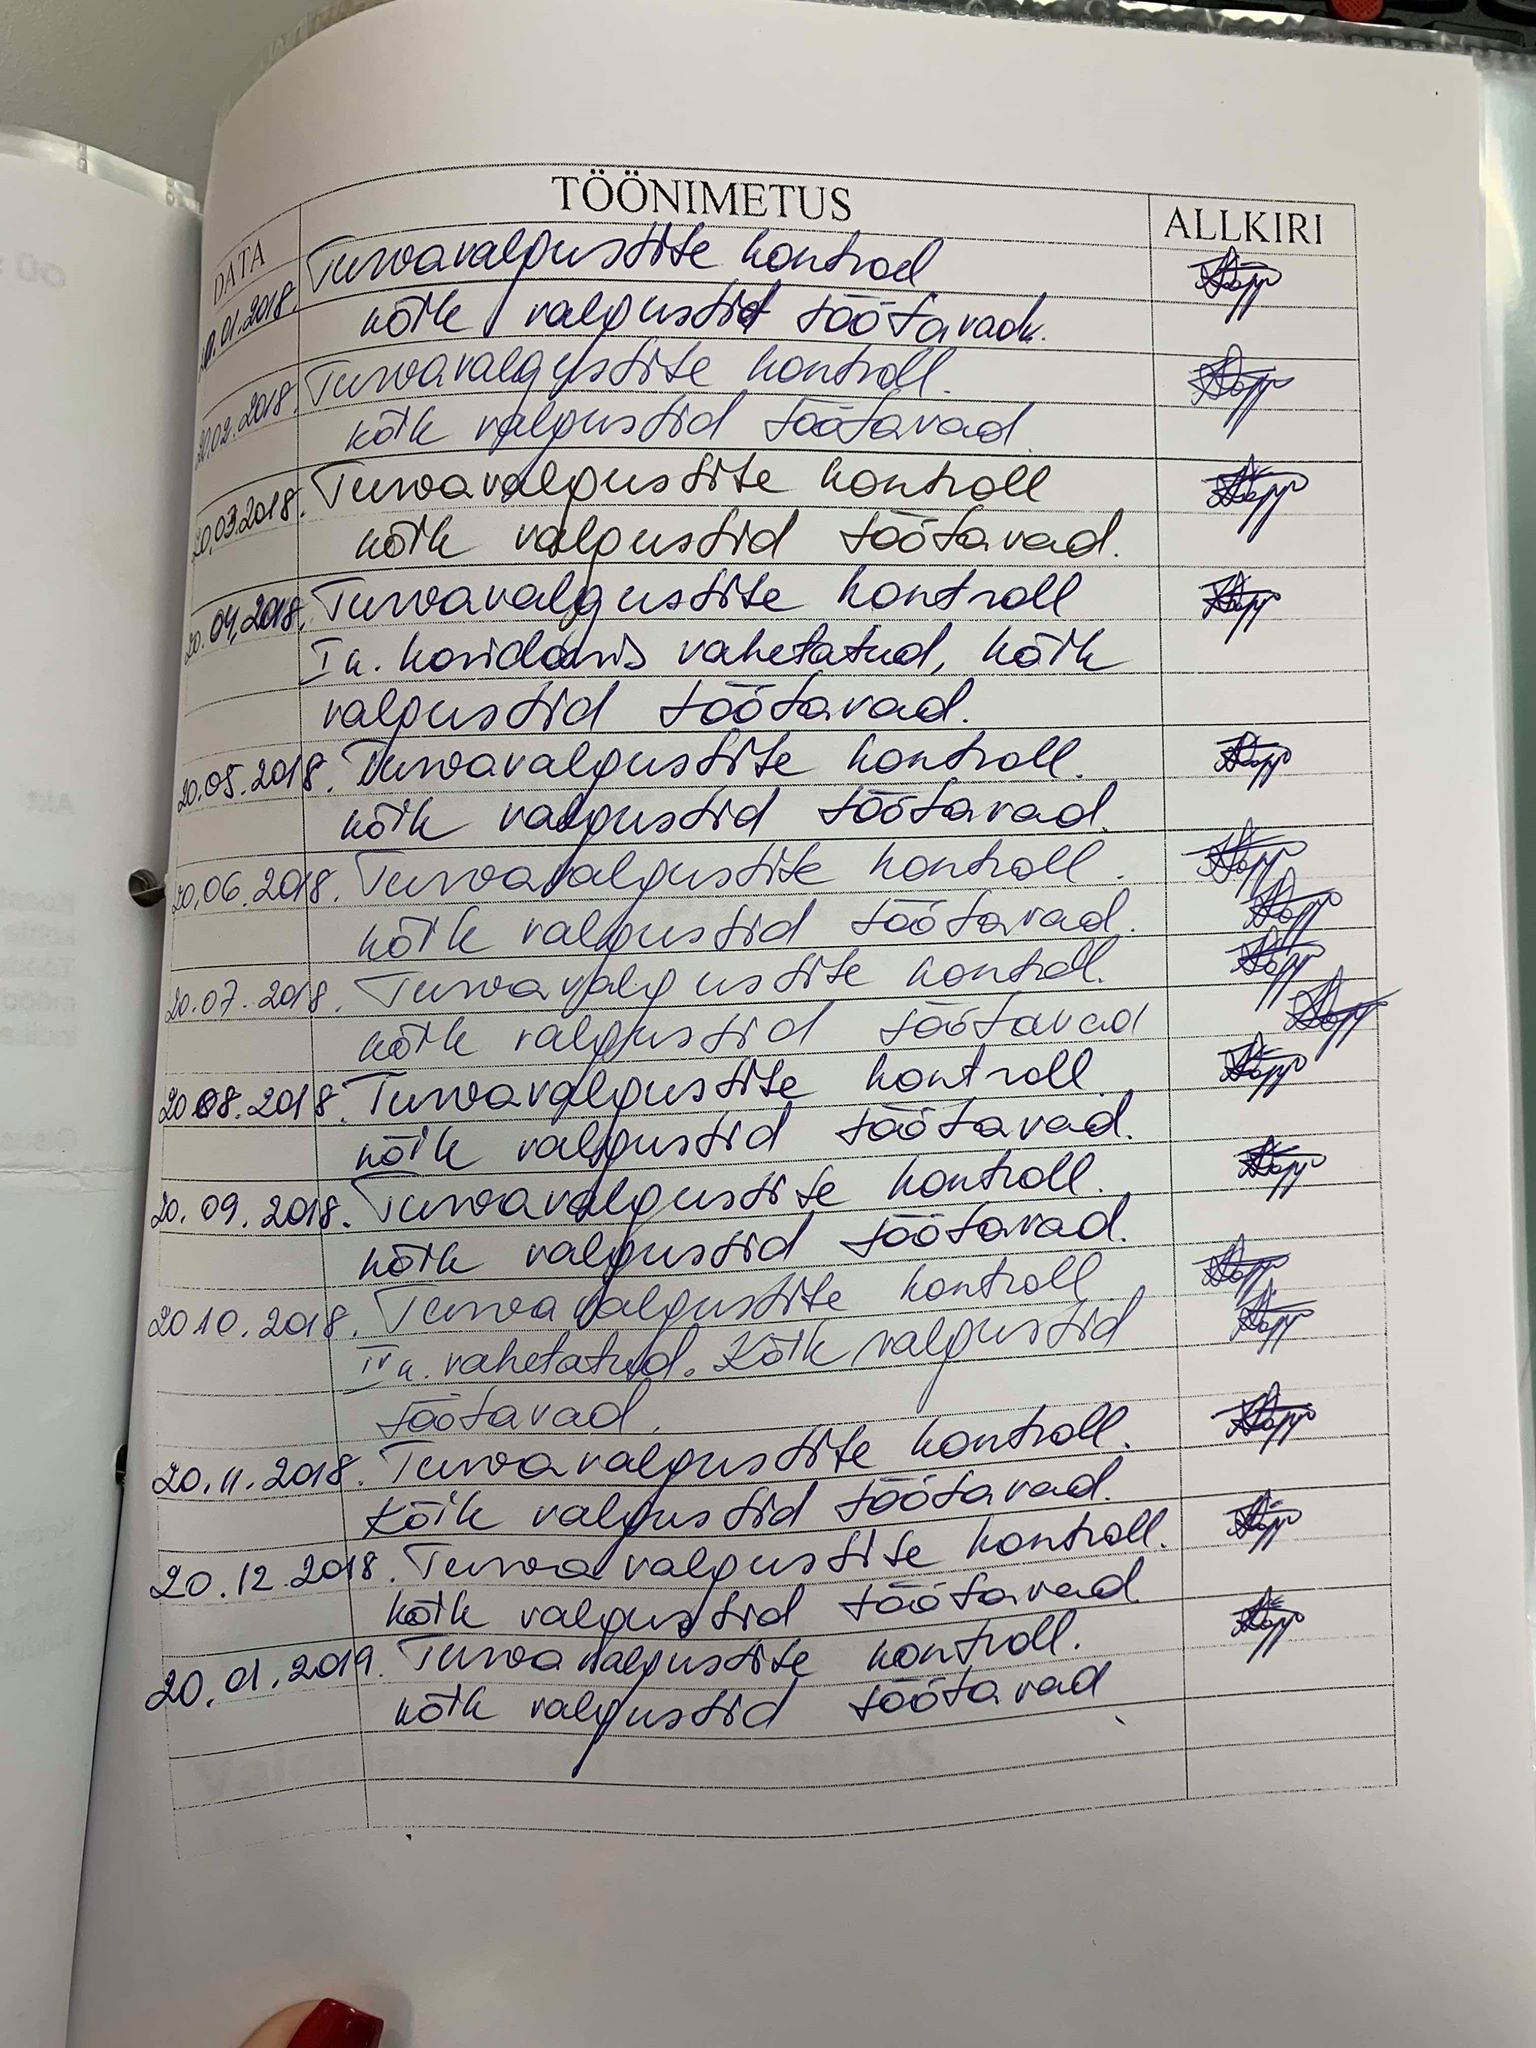 DATA TÖÖNIMETUS ALLKIRI
.01.2018. Turvavalgustite kontroll
kõik valgustid töötavad.
20.02.2018. Turvavalgustite kontroll.
kõik valgustid töötavad
20.03.2018. Turvavalgustite kontroll
kõik valgustid töötavad.
20.04.2018. Turvavalgustite kontroll
I k. koridoris vahetatud, kõik
valgustid töötavad.
20.05.2018. Turvavalgustite kontroll.
kõik valgustid töötavad.
20.06.2018. Turvavalgustite kontroll.
kõik valgustid töötavad.
20.07.2018. Turvavalgustite kontroll.
kõik valgustid töötavad
20.08.2018. Turvavalgustite kontroll
kõik valgustid töötavad.
20.09.2018. Turvavalgustite kontroll.
kõik valgustid töötavad.
20.10.2018. Turvavalgustite kontroll.
IV k. vahetatud. Kõik valgustid
töötavad.
20.11.2018. Turvavalgustite kontroll.
Kõik valgustid töötavad.
20.12.2018. Turvavalgustite kontroll.
kõik valgustid töötavad
20.01.2019. Turvavalgustite kontroll.
kõik valgustid töötavad